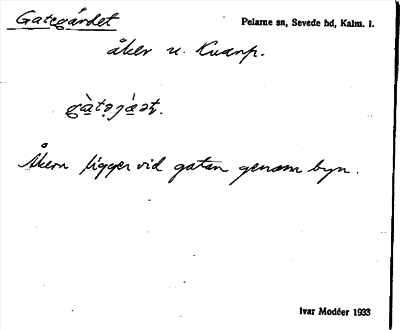 Gategärdet
Pelarne sn, Sevede hd, Kalm. l.
åker u. Kvarp.
Åkern ligger vid gatan genom byn.
Ivar Modéer 1933